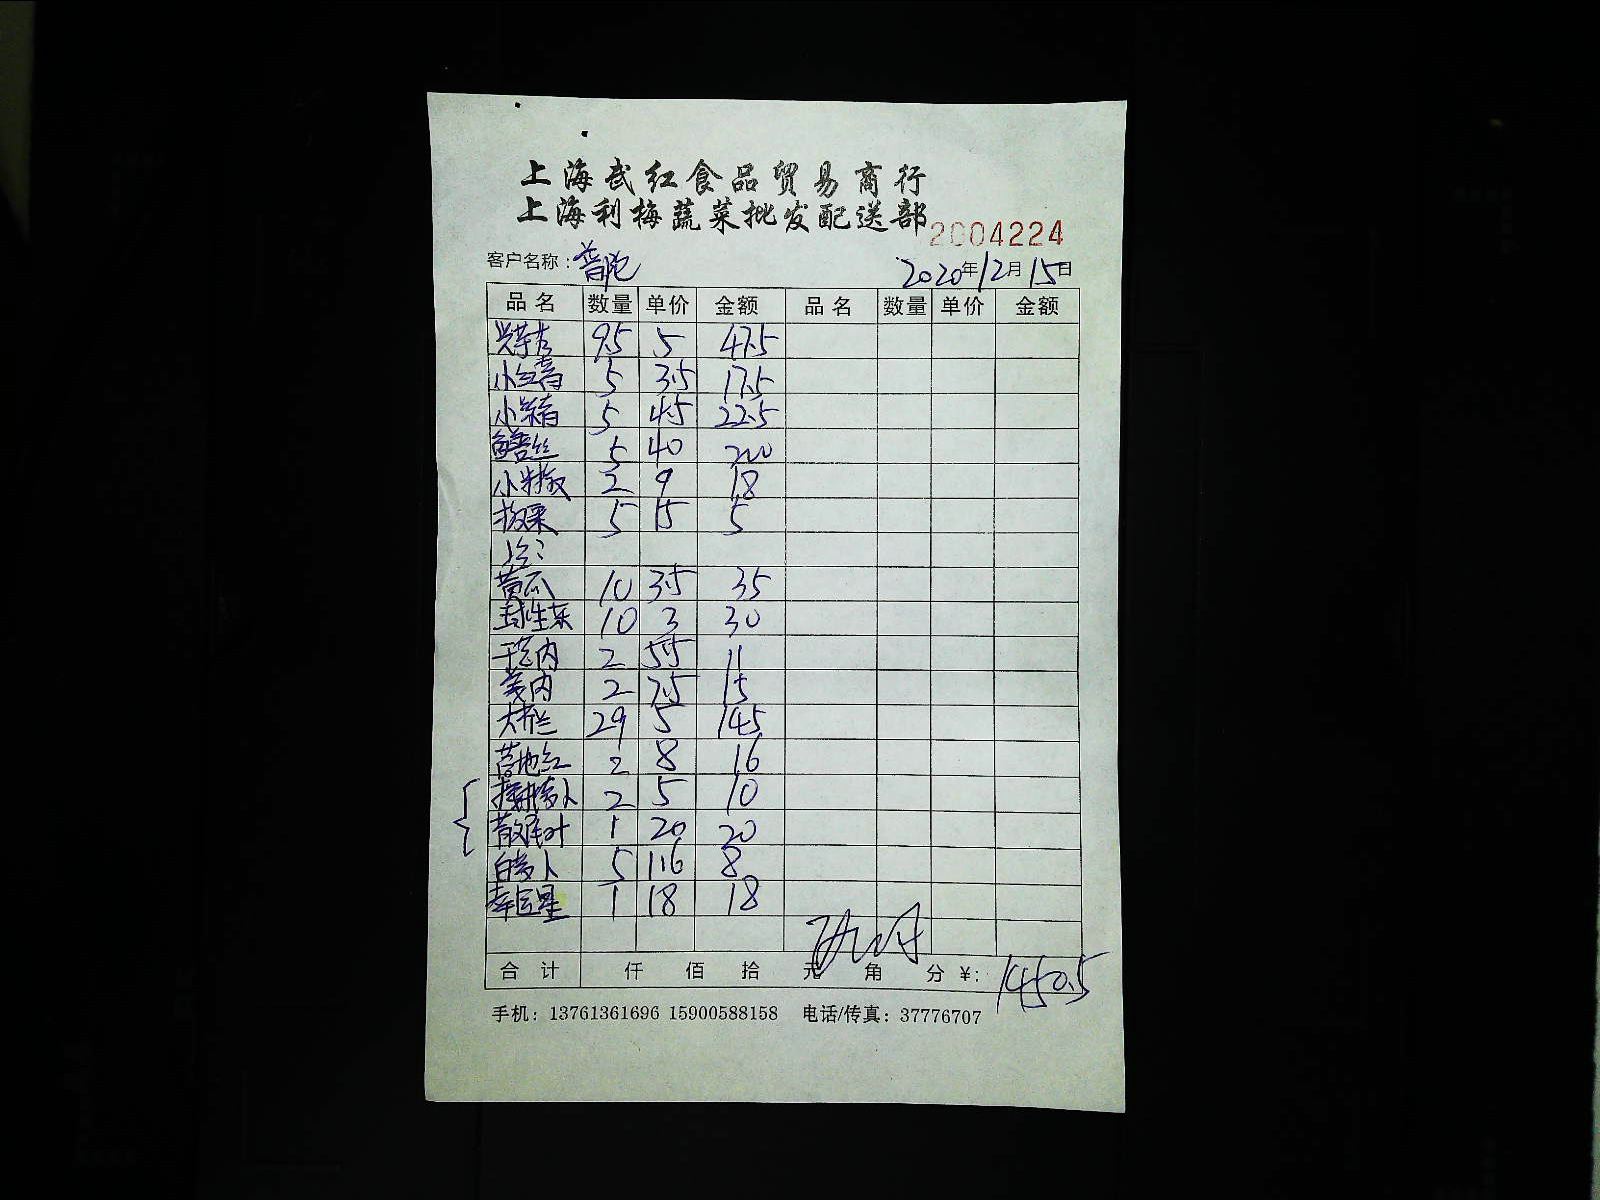 上海武红食品贸易商行
上海利梅蔬菜批发配送部
2004224
客户名称：普陀 2020年12月15日
品名 数量 单价 金额 品名 数量 单价 金额
9.5 5 47.5
小红 5 3.5 17.5
小 5 4.5 22.5
鳝丝 5 40 200
小米椒 2 9 18
5 15 5
黄瓜 10 3.5 35
球生菜 10 3 30
2 5.5 11
2 7.5 15
大芥兰 29 5 145
2 8 16
2 5 10
1 20 20
白萝卜 5 1.6 8
幸运星 1 18 18
合计 仟 佰 拾 元 角 分 ¥: 1450.5
手机：13761361696 15900588158 电话/传真：37776707